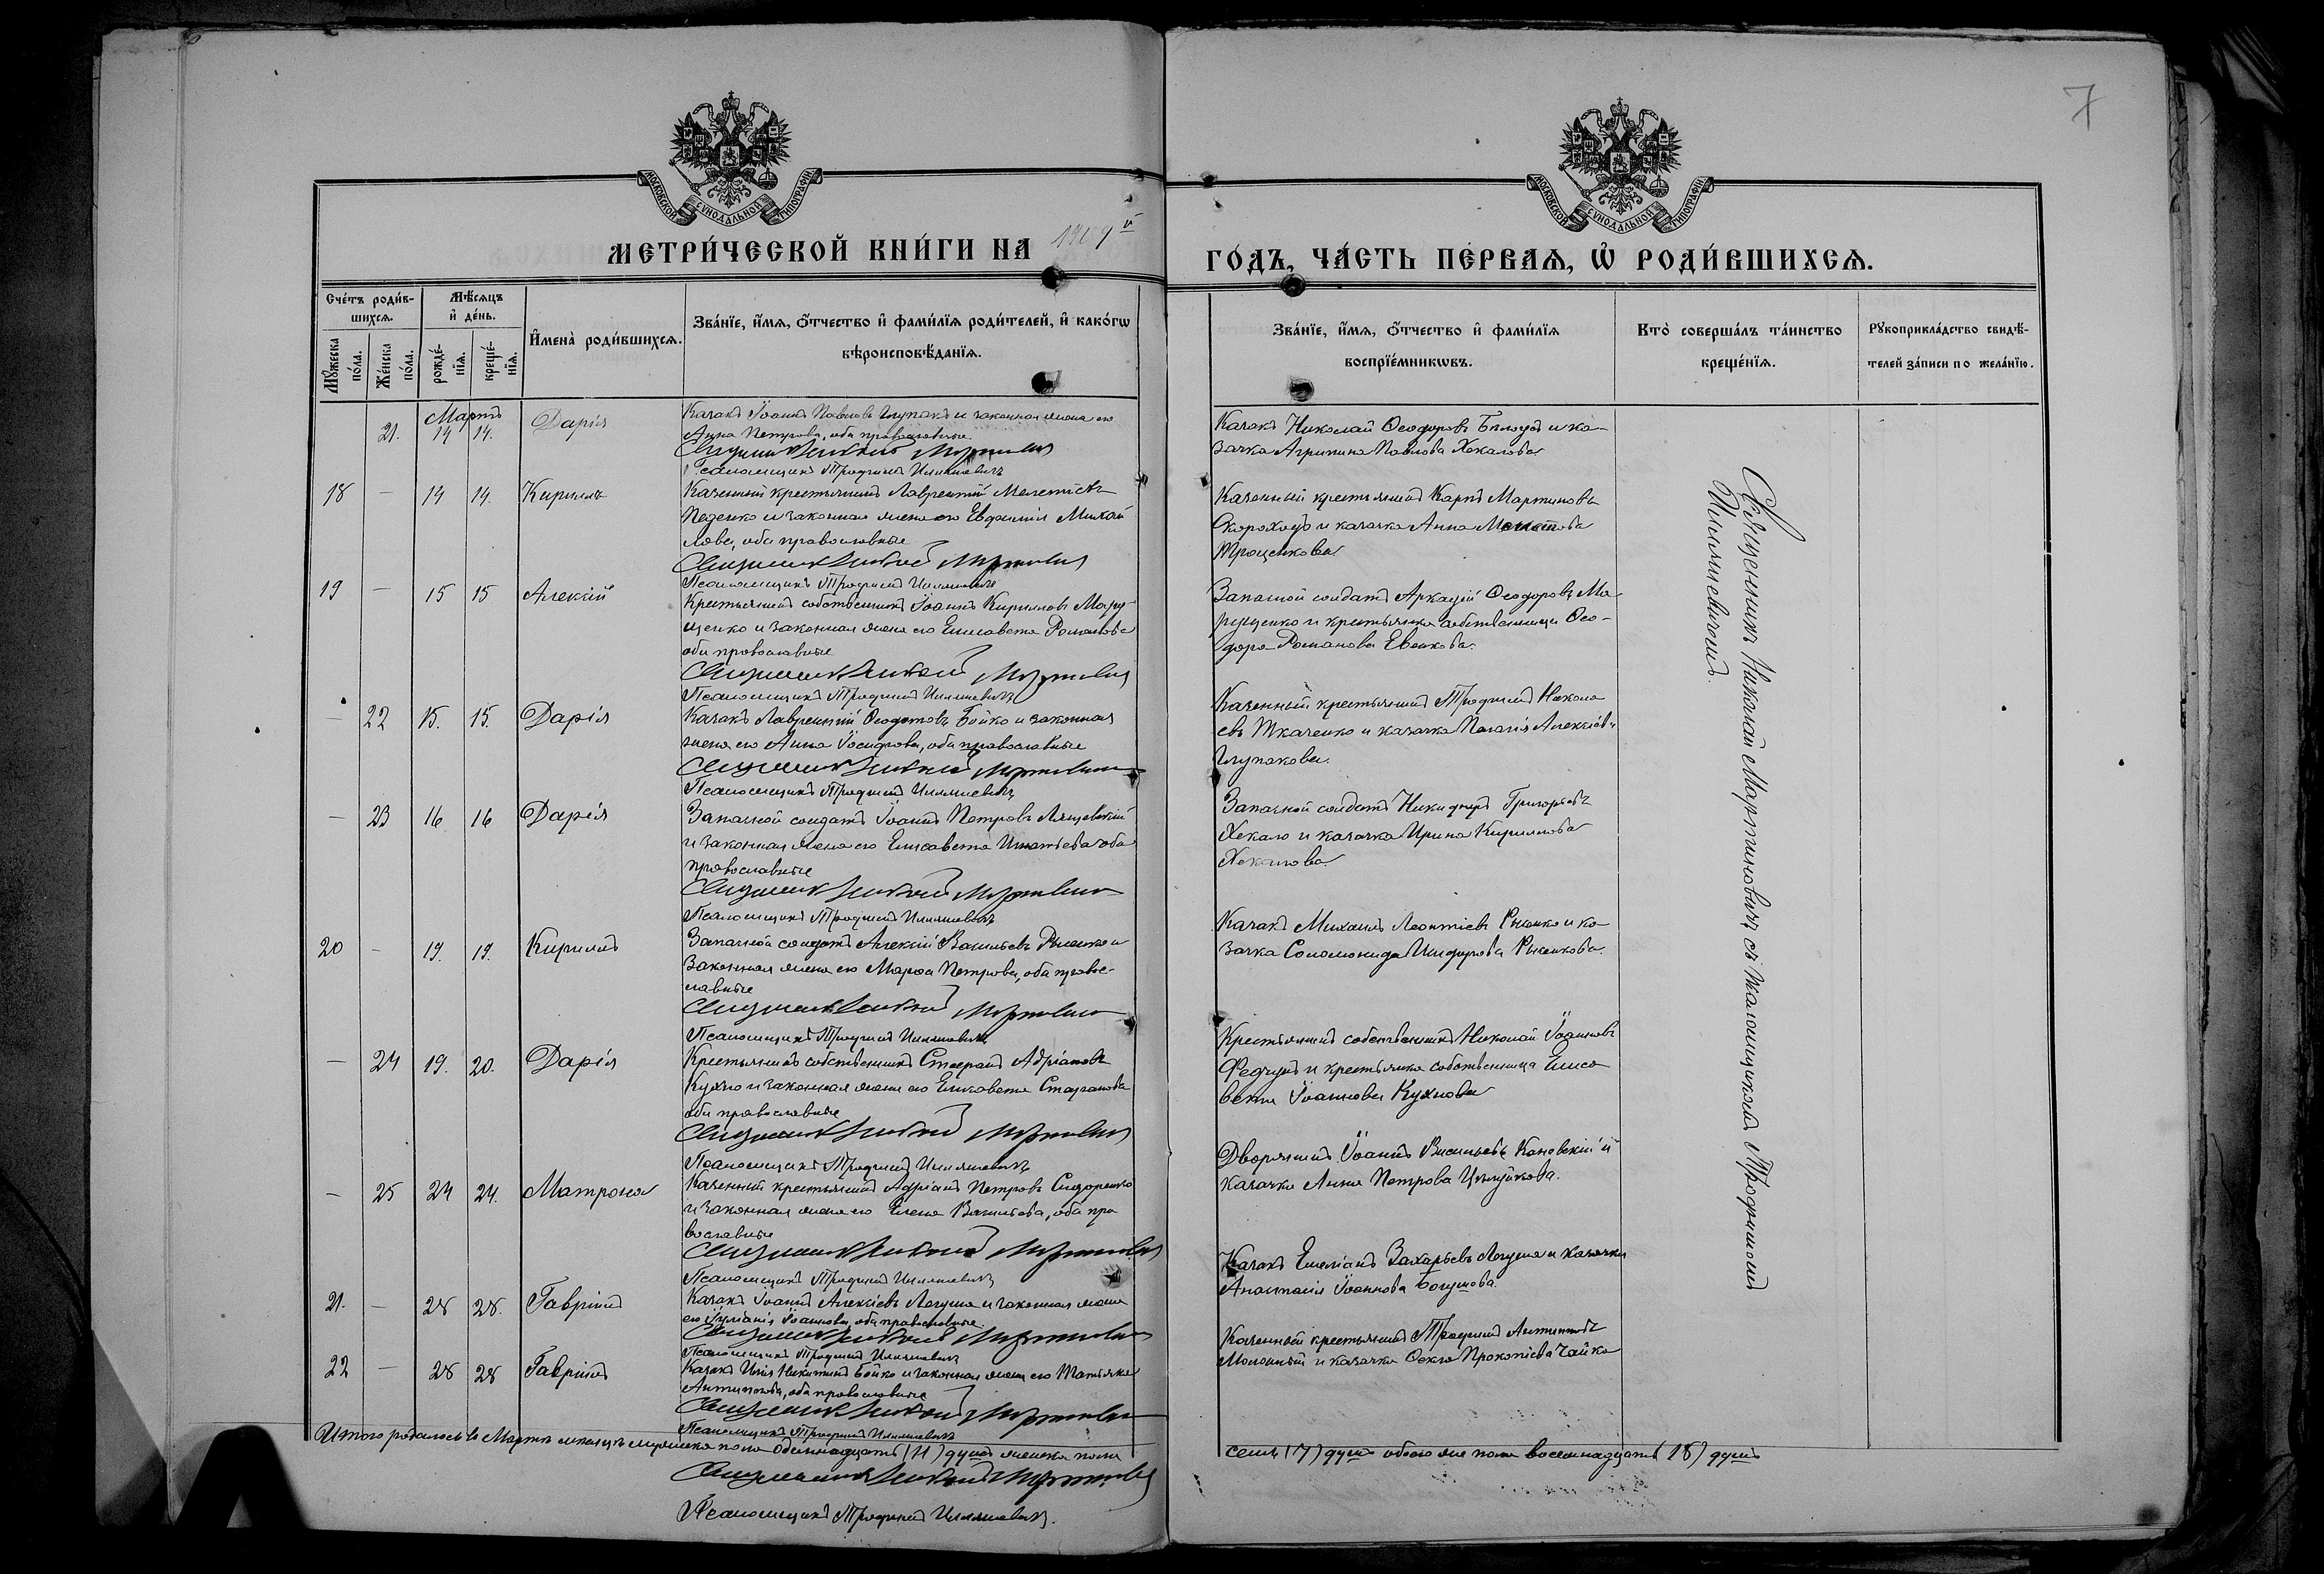 7
МОСКОВСКОЙ СУНОДАЛЬНОЙ ТИПОГРАФІИ
МОСКОВСКОЙ СУНОДАЛЬНОЙ ТИПОГРАФІИ
МЕТРИ́ЧЕСКОЙ КНИ́ГИ НА 1909 й
ГО́ДЪ, ЧА́СТЬ ПЕ́РВАѦ, Ѡ҆ РОДИ́ВШИХСѦ.
Сче́тъ роди́в-
шихсѧ.
Мѣ́сѧцъ
и҆ де́нь.
Мꙋ́жеска
по́ла.
Же́нска
по́ла.
рожде́-
нїѧ.
креще́-
нїѧ.
И҆мена̀ роди́вшихсѧ.
Зва́нїе, и҆́мѧ, ѻ҆́тчество и҆ фами́лїѧ роди́телей, и҆ како́гѡ
вѣроисповѣ́данїѧ.
Зва́нїе, и҆́мѧ, ѻ҆́тчество и҆ фами́лїѧ
воспрїе́мникѡвъ.
Кто̀ соверша́лъ та́инство
креще́нїѧ.
Рꙋкоприкла́дство свидѣ́-
телей за́писи по жела́нїю.
Мартъ
21. 14 14. Дарія
Казакъ Іоаннъ Павловъ Глупакъ и законная жена его
Анна Петрова, оба православные
Священникъ Николай Мартинович
Псаломщикъ Трофимъ Илляшевичъ
Казакъ Николай Ѳеодоровъ Білоусъ и ка-
зачка Агрипина Павлова Хекалова
18 — 14 14. Кириллъ
Казенный крестьянинъ Лаврентій Мелетіевъ
Педенко и законная жена его Евфимія Михай
лова, оба православные
Священникъ Николай Мартинович
Псаломщикъ Трофимъ Илляшевичъ
Казенный крестьянинъ Карпъ Мартиновъ
Скороходъ и казачка Анна
Троценкова
19 — 15 15 Алексій
Крестьянинъ собственникъ Іоаннъ Кирилловъ Мару-
щенко и законная жена его Елисавета Романова
оба православные
Священникъ Николай Мартинович
Псаломщикъ Трофимъ Илляшевичъ
Запасной солдатъ Аркадій Ѳеодоровъ Ма
рущенко и крестьянка собственница Ѳео-
дора Романова Евенкова.
— 22 15. 15. Дарія
Казакъ Лаврентій Ѳеодотовъ Бойко и законная
жена его Анна Іосифова, оба православные
Священникъ Николай Мартинович
Псаломщикъ Трофимъ Илляшевичъ
Казенный крестьянинъ Трофимъ Никола
евъ Ткаченко и казачка Пелагія Алексіева
Глупакова.
— 23 16 16 Дарія
Запасной солдатъ Іоаннъ Петровъ Лящевскій
и законная жена его Елисавета Игнатьева оба
православные
Священникъ Николай Мартинович
Псаломщикъ Трофимъ Илляшевичъ
Запасной солдатъ Никифоръ Григорьевъ
Хекало и казачка Ирина Кириллова
Хекалова.
20 — 19. 19. Кириллъ
Запасной солдатъ Алексій Васильевъ Рыенко и
законная жена его Марѳа Петрова, оба право-
славные
Священникъ Николай Мартинович
Псаломщикъ Трофимъ Илляшевичъ
Казакъ Михаилъ Леонтіевъ Рыенко и ка-
зачка Соломонида Рыенкова.
— 24 19. 20. Дарія
Крестьянинъ собственникъ Стефанъ Адріановъ
Кухно и законная жена его Елисавета Стефанова
оба православные
Священникъ Николай Мартинович
Псаломщикъ Трофимъ Илляшевичъ
Крестьянинъ собственникъ Николай Іоанновъ
Федчунъ и крестьянка собственница Елиса
вета Іоаннова Кухнова
— 25 24 24. Матрона
Казенный крестьянинъ Адріанъ Петровъ Сидоренко
и законная жена его Елена Васильева, оба пра
вославные
Священникъ Николай Мартинович
Псаломщикъ Трофимъ Илляшевичъ
Дворянинъ Іоаннъ Васильевъ Кановскій и
казачка Анна Петрова
21. — 28 28. Гавріилъ
Казакъ Іоаннъ Алексіевъ Логуша и законная жена
его Іуліанія Іоаннова, оба православные.
Священникъ Николай Мартинович
Псаломщикъ Трофимъ Илляшевичъ
Казакъ Емеліанъ Захарьевъ Логуша и казачка
Анастасія Іоаннова Богушова.
22 — 28 28 Гавріилъ
Казакъ Илія Никитинъ Бойко и законная жена его Татьяна
Антипова, оба православные
Священникъ Николай Мартинович
Псаломщикъ Трофимъ Илляшевичъ
Казенный крестьянинъ Трофимъ Антиповъ
и казачка Ѳекла Прокопіева Чайка
Священникъ Николай Мартиновичъ съ псаломщикомъ Трофимомъ
Илляшевичемъ.
Итого родилось въ Мартѣ мѣсяцѣ мужеска пола одиннадцать (11) душъ женска пола
семь (7) душъ обоего же пола восемнадцать (18) душъ
Священникъ Николай Мартинович
Псаломщикъ Трофимъ Илляшевичъ.